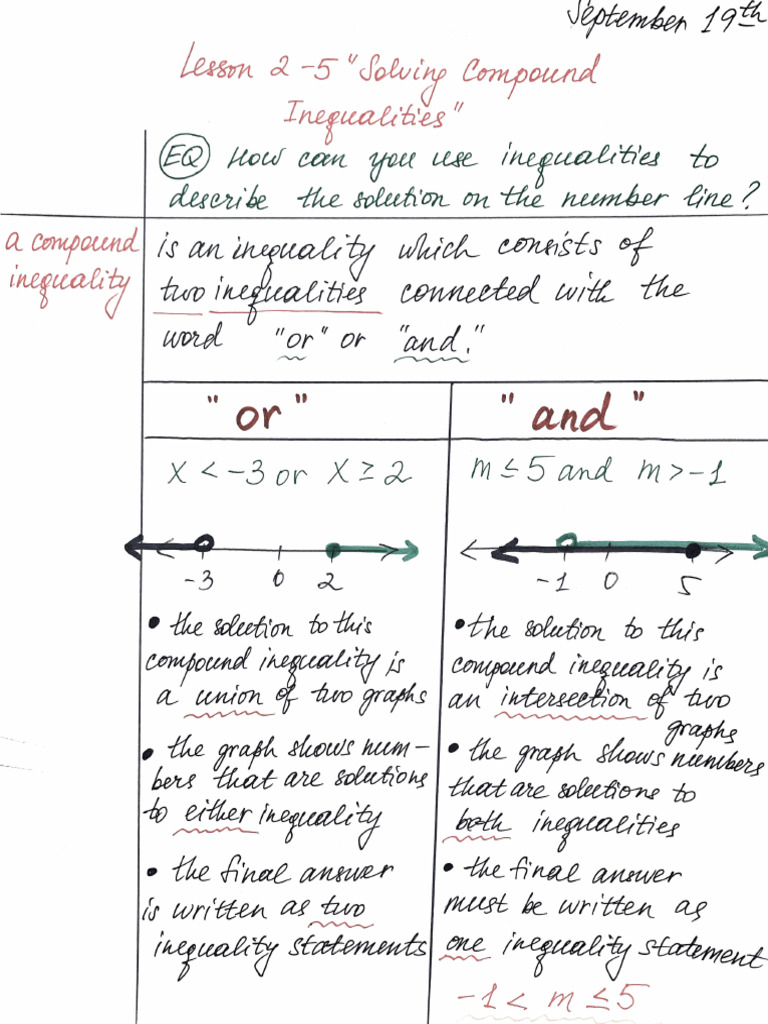 September 19th
Lesson 2-5 "Solving Compound
Inequalities"
EQ How can you use inequalities to
describe the solution on the number line?
a compound
inequality
is an inequality which consists of
two inequalities connected with the
word "or" or "and."
"or"
x < -3 or x ≥ 2
-3 0 2
• the solution to this
compound inequality is
a union of two graphs
• the graph shows num-
bers that are solutions
to either inequality
• the final answer
is written as two
inequality statements
"and"
m ≤ 5 and m > -1
-1 0 5
• the solution to this
compound inequality is
an intersection of two
graphs
• the graph shows numbers
that are solutions to
both inequalities
• the final answer
must be written as
one inequality statement
-1 < m ≤ 5